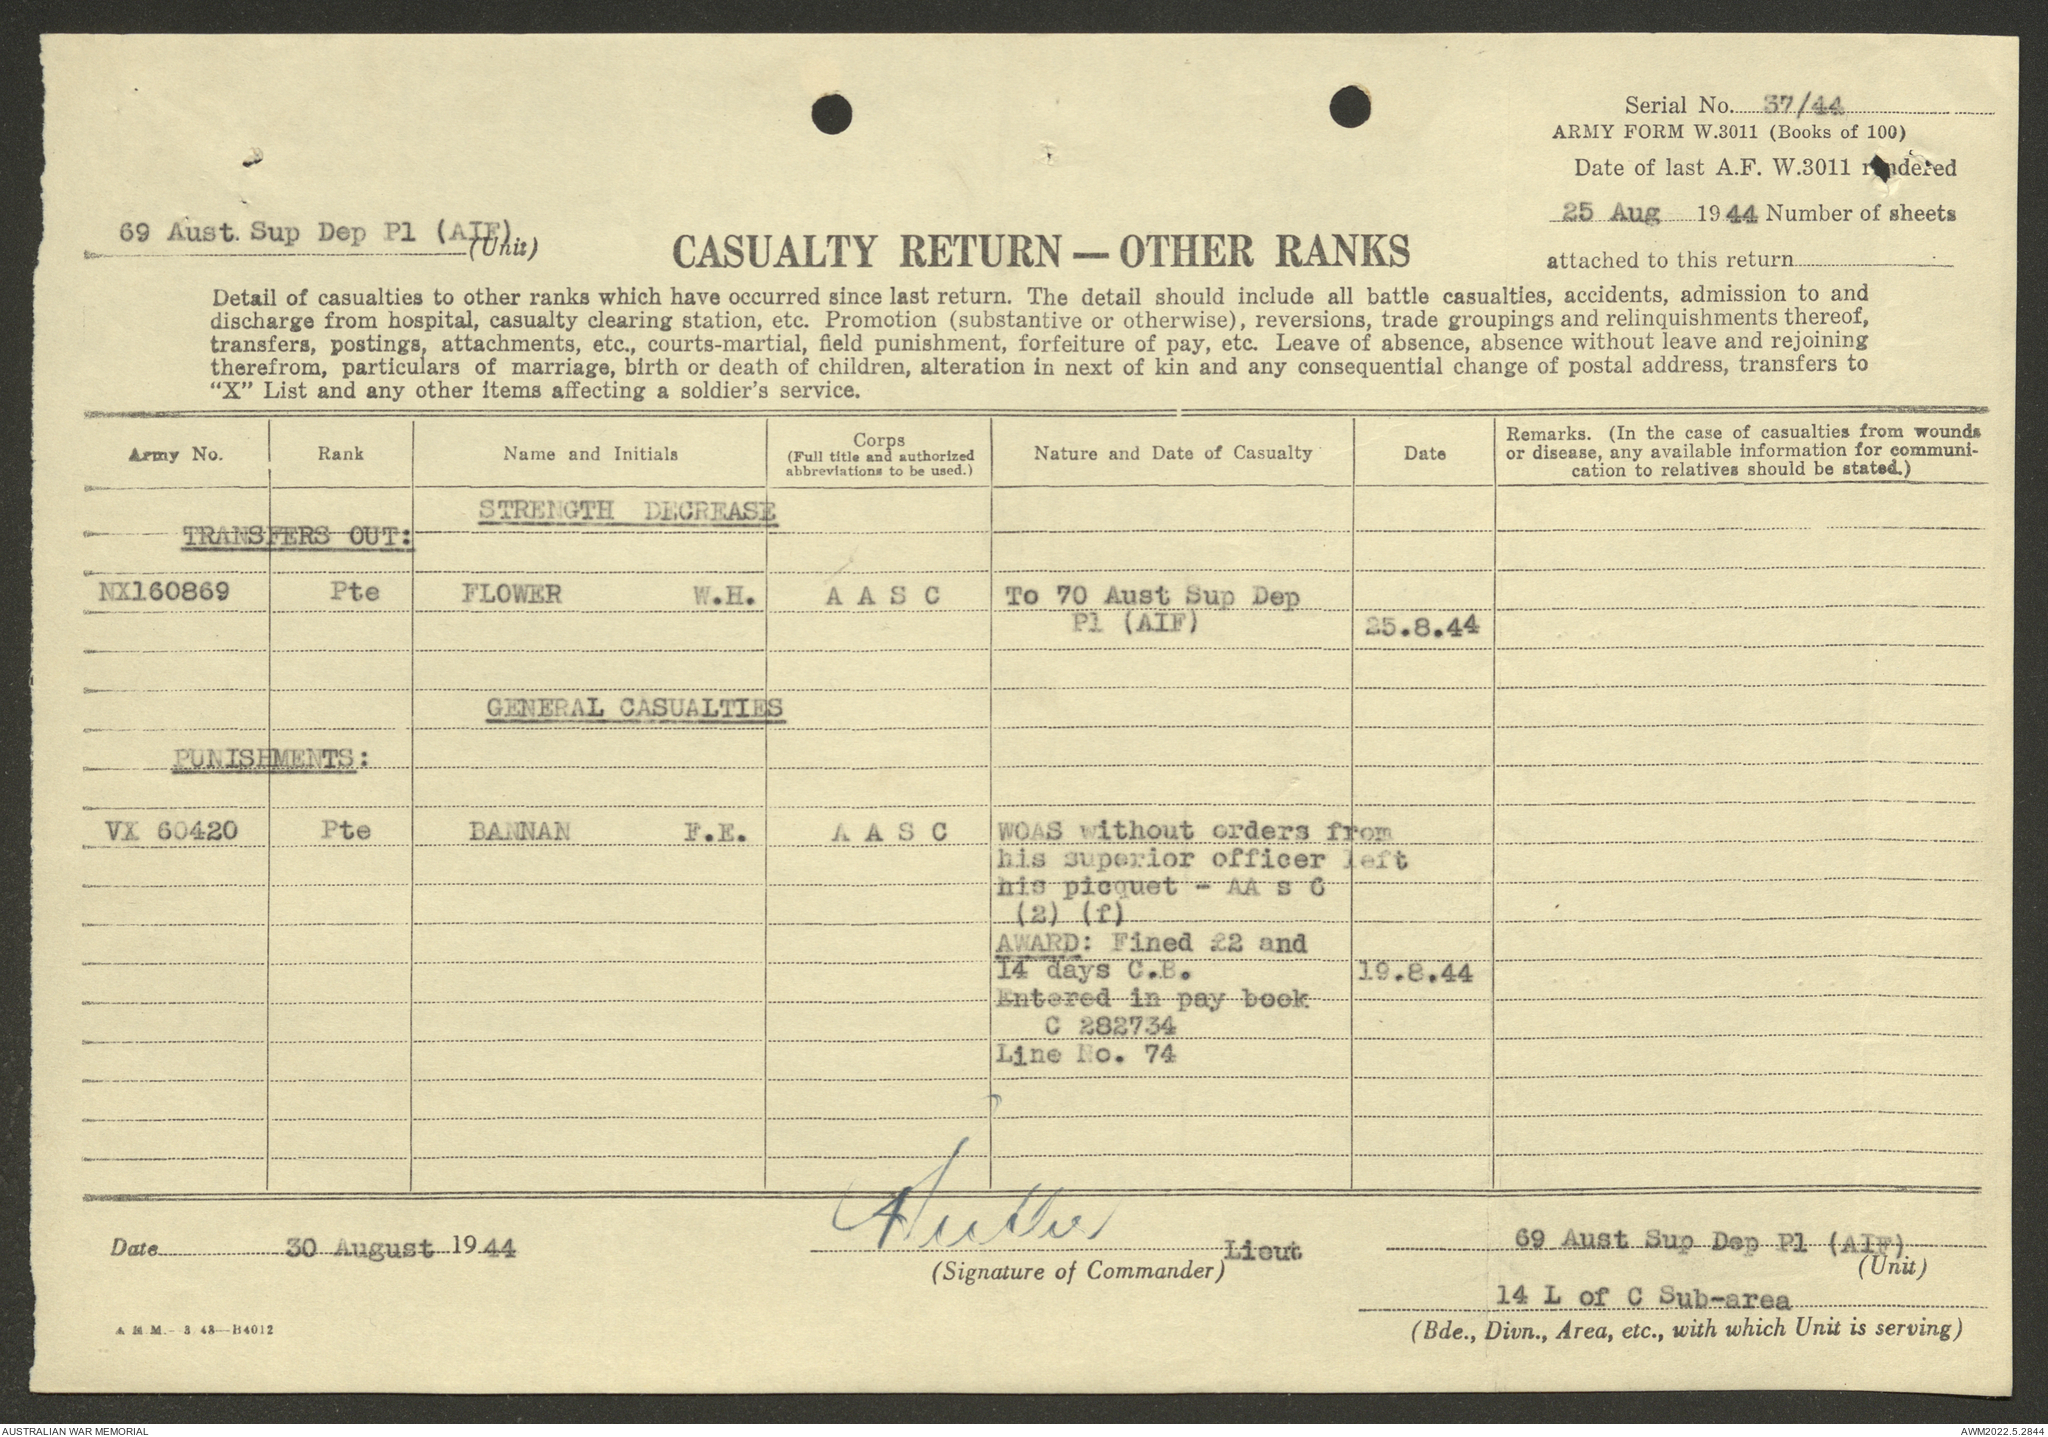 Serial No. 37/44
ARMY FORM W.3011 (Books of 100)
Date of last A.F. W.3011 rendered
25 Aug 1944 Number of sheets
attached to this return
69 Aust. Sup Dep Pl (AIF)
(Unit)
CASUALTY RETURN — OTHER RANKS
Detail of casualties to other ranks which have occurred since last return. The detail should include all battle casualties, accidents, admission to and
discharge from hospital, casualty clearing station, etc. Promotion (substantive or otherwise), reversions, trade groupings and relinquishments thereof,
transfers, postings, attachments, etc., courts-martial, field punishment, forfeiture of pay, etc. Leave of absence, absence without leave and rejoining
therefrom, particulars of marriage, birth or death of children, alteration in next of kin and any consequential change of postal address, transfers to
"X" List and any other items affecting a soldier's service.
Army No.
Rank
Name and Initials
Corps
(Full title and authorized
abbreviations to be used.)
Nature and Date of Casualty
Date
Remarks. (In the case of casualties from wounds
or disease, any available information for communi-
cation to relatives should be stated.)
STRENGTH DECREASE
TRANSFERS OUT:
NX160869 Pte FLOWER W.H. A A S C To 70 Aust Sup Dep
Pl (AIF) 25.8.44
GENERAL CASUALTIES
PUNISHMENTS:
VX 60420 Pte BANNAN F.E. A A S C WOAS without orders from
his superior officer left
his picquet - AA s 6
(2) (f)
AWARD: Fined £2 and
14 days C.B. 19.8.44
Entered in pay book
C 282734
Line No. 74
Date 30 August 1944
Lieut
(Signature of Commander)
69 Aust Sup Dep Pl (AIF)
(Unit)
14 L of C Sub-area
(Bde., Divn., Area, etc., with which Unit is serving)
AUSTRALIAN WAR MEMORIAL
AWM2022.5.2844